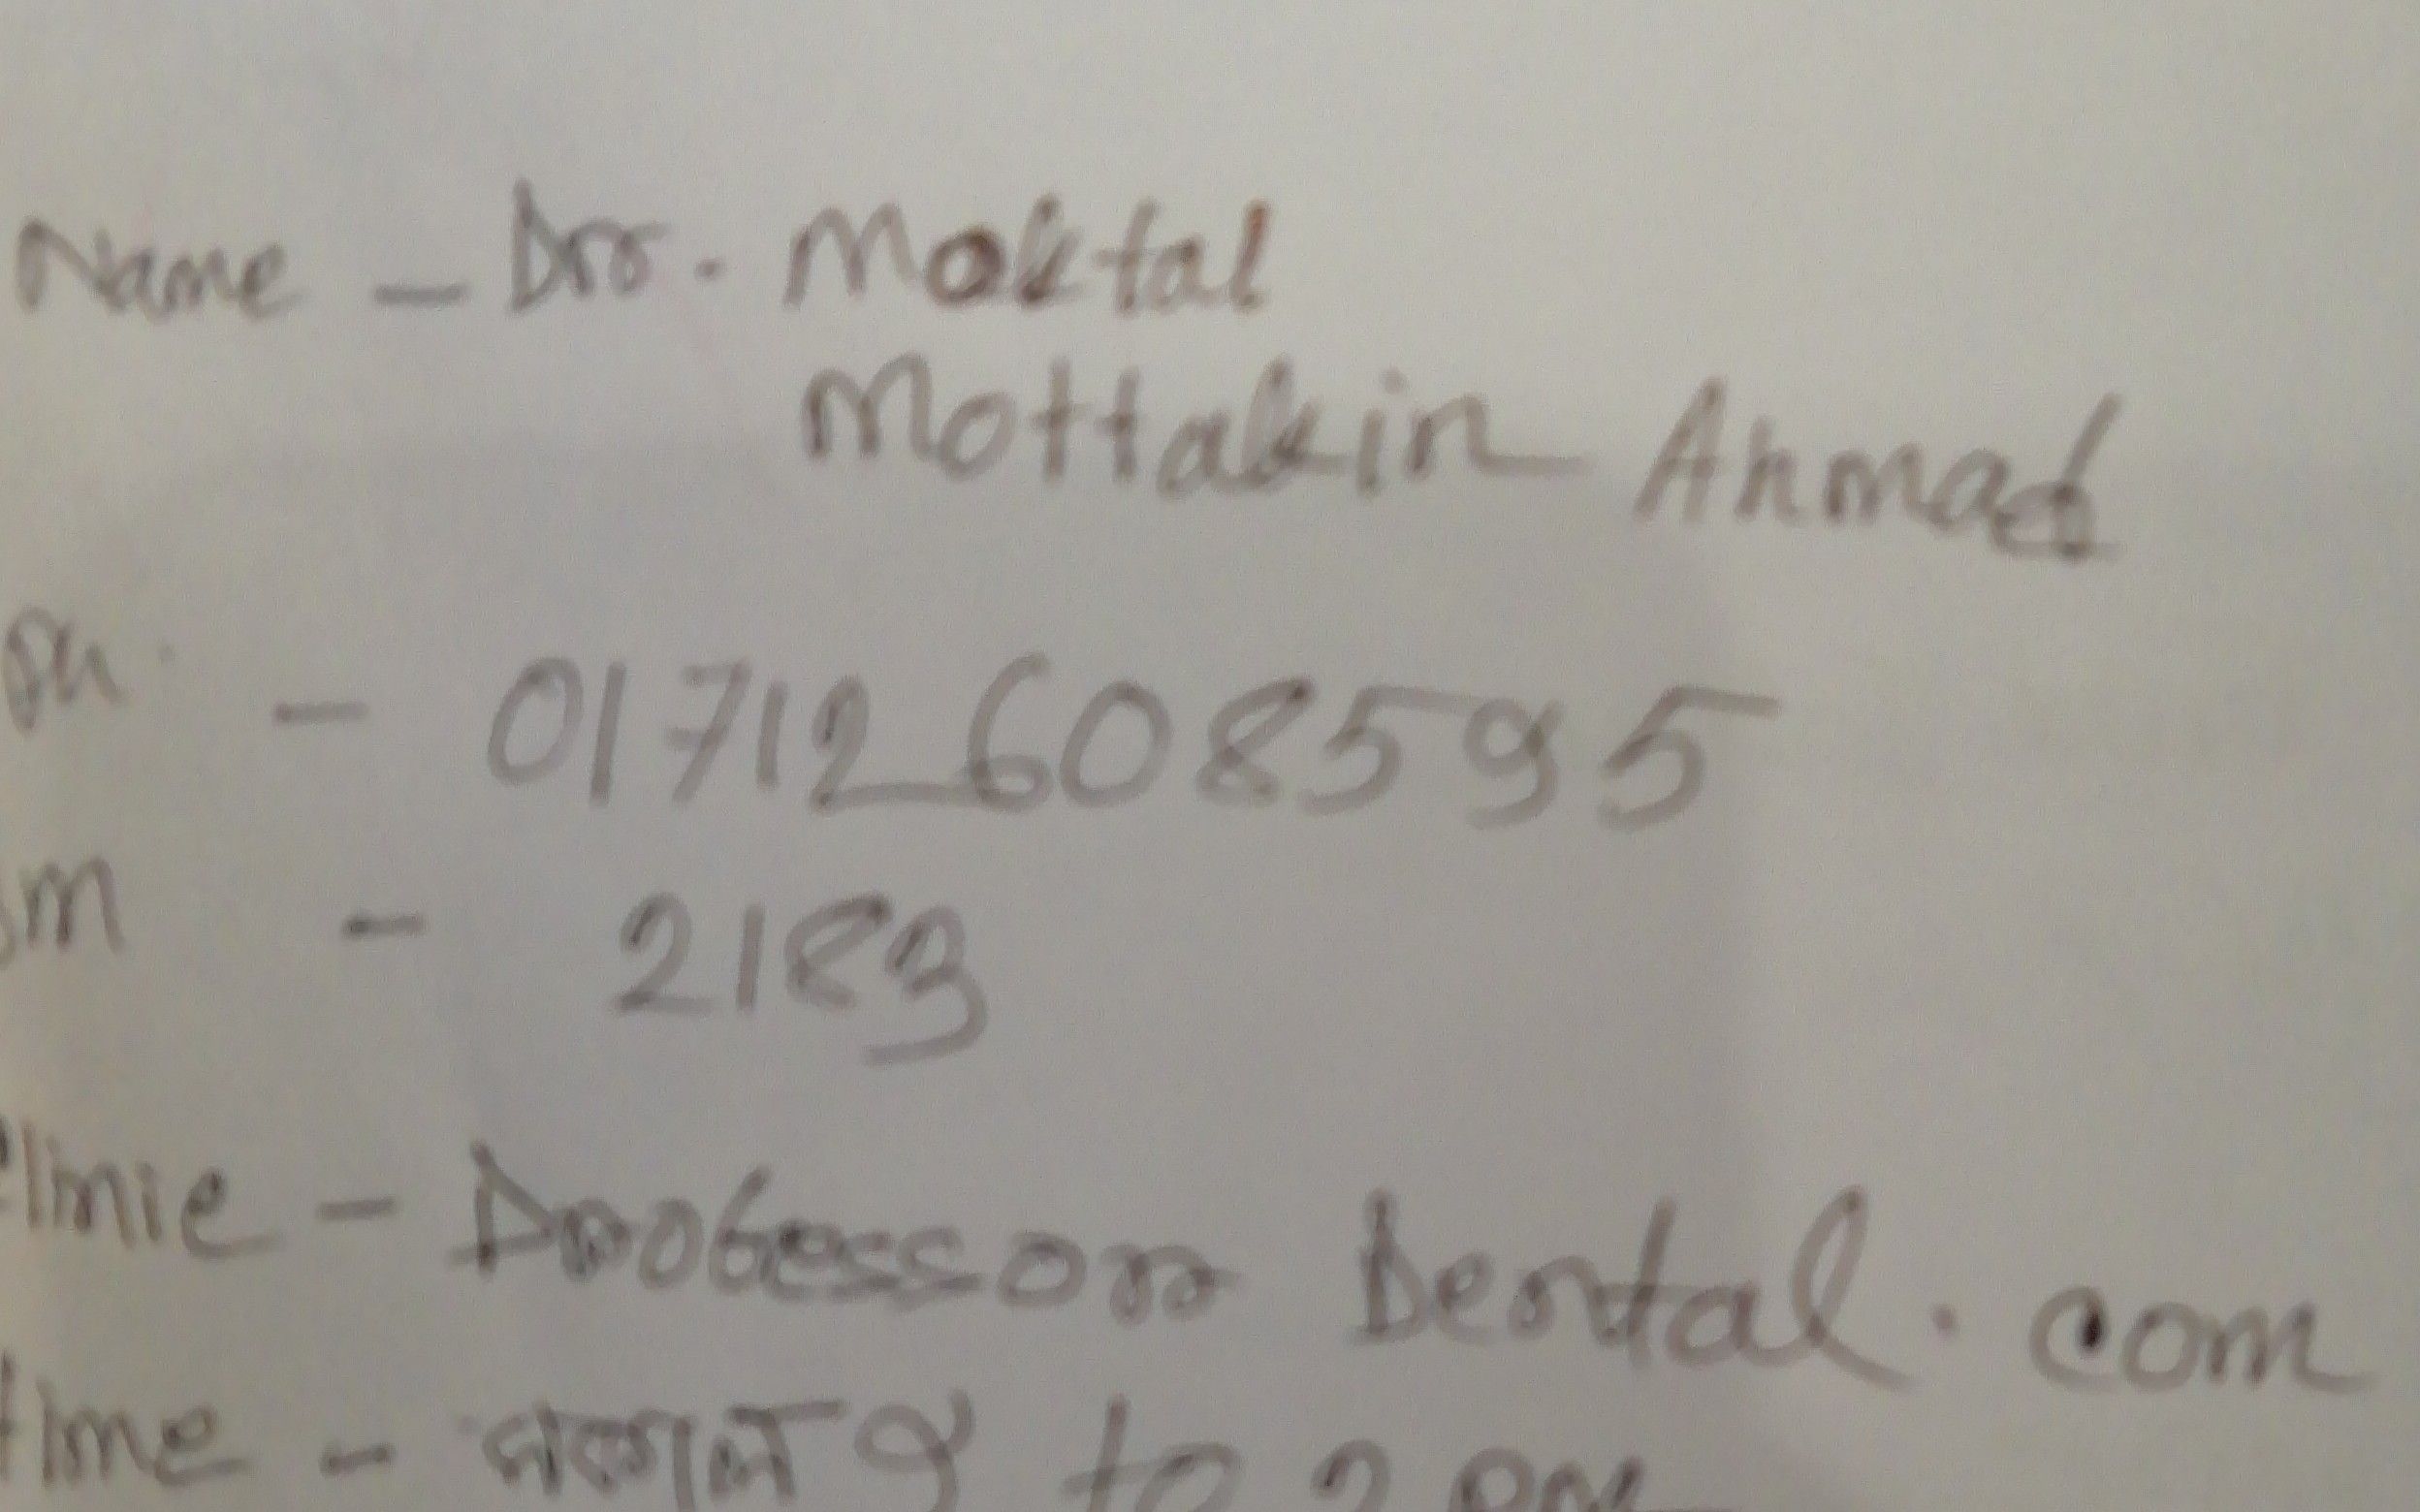 Name - Drr. Moktal
Mottakin Ahmad
Ph. - 01712608595
m - 2183
Clinic - Professorr Dental.com
time - সকাল ৯ to 2 PM